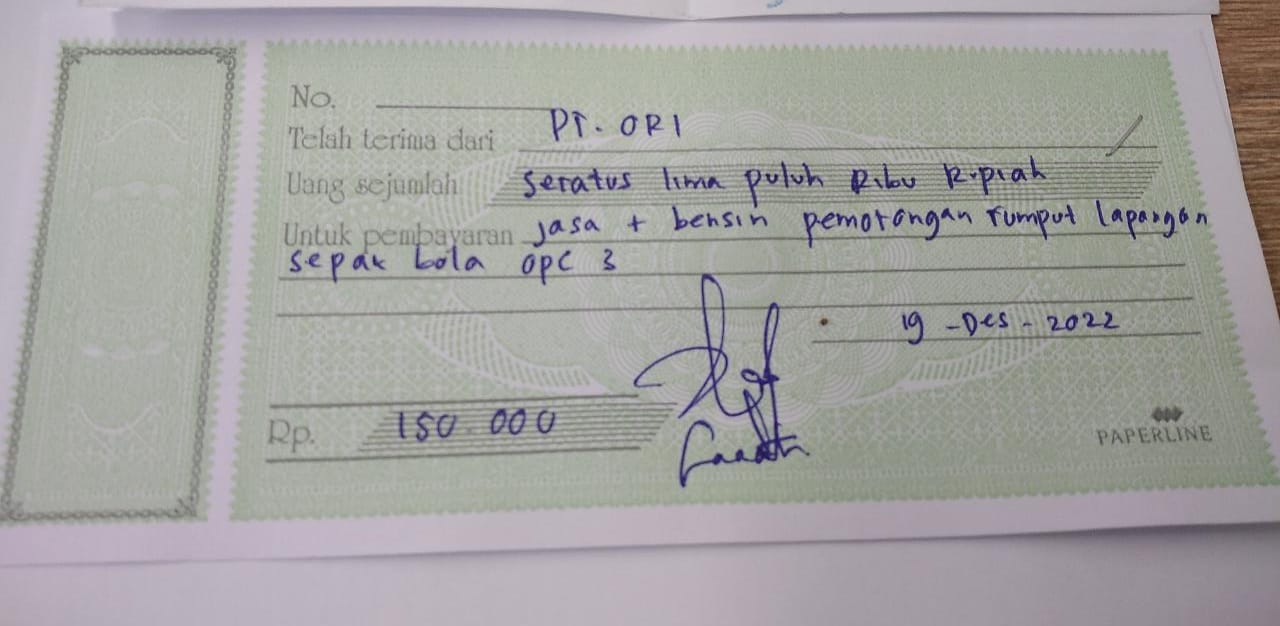 No.
Telah terima dari PT. ORI
Uang sejumlah seratus lima puluh Ribu Rupiah
Untuk pembayaran Jasa + bensin pemotongan rumput lapangan
sepak bola OPC 3
19 - Des - 2022
Rp. 150.000
PAPERLINE